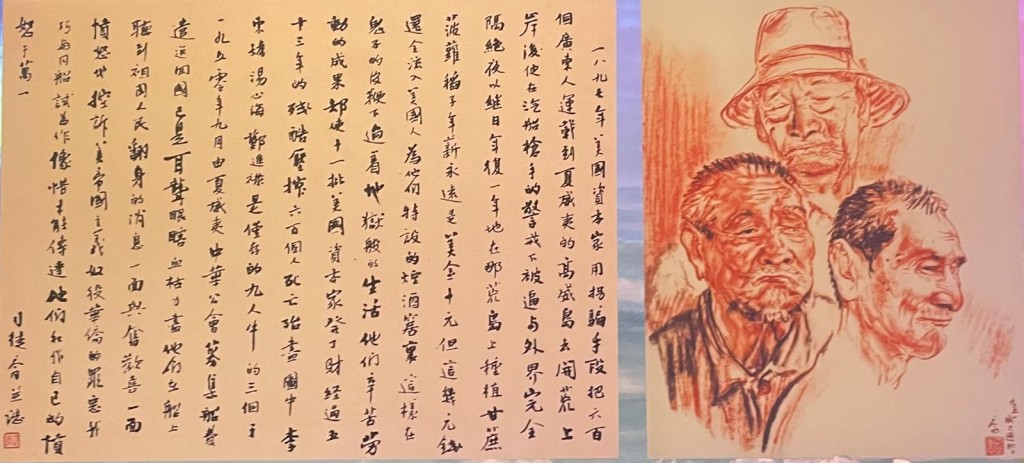 一八九七年美國資本家用拐騙手段把六百
個廣東人運載到夏威夷的高威島去開荒上
岸後便在汽船槍手的警戒下被逼与外界完全
隔絕夜以继日年復一年地在那荒島上種植甘蔗
菠蘿稻子年薪永遠是美金十元但這幾元錢
還全流入美國人為他們特設的煙酒窩裏這樣在
鬼子的皮鞭下過着地獄般的生活他們辛苦勞
動的成果却使十一批美國資本家發了財经過五
十三年的残酷壓榨六百個人死亡殆盡圖中李
東號湯心海鄭進祿是僅存的九人中的三個于
一九五零年九月由夏威夷中華公會募集船費
遣送回國已是耳聾眼瞎血枯力盡他們在船上
聽到祖國人民翻身的消息一面興奮歡喜一面
憤怒地控訴美帝國主義奴役華僑的罪惡我
巧与同船試為作像惜未能傳達他們和作自己的憤
怒于萬一
司徒喬並誌